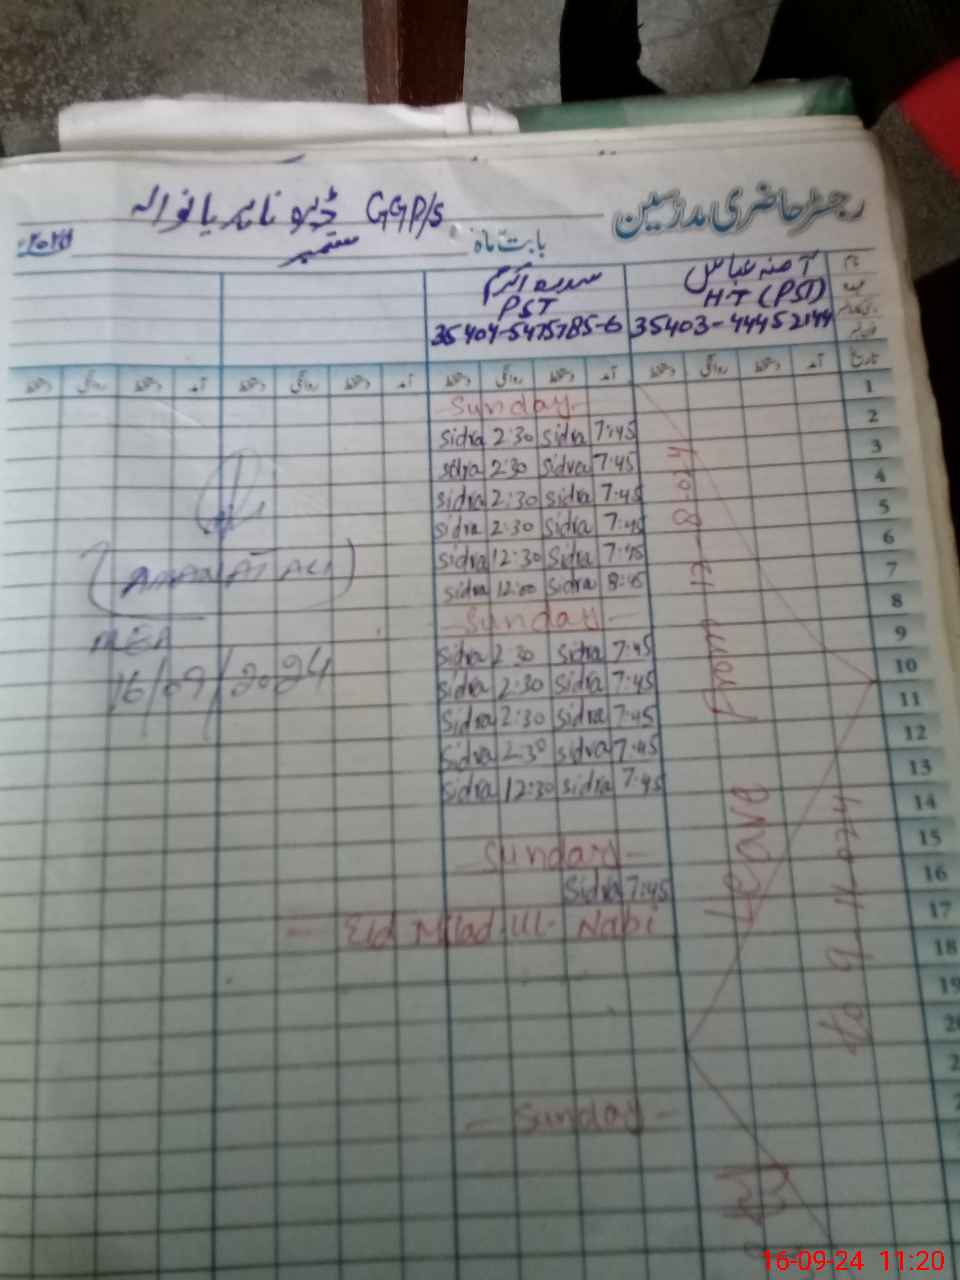 رجسٹر حاضری مدرسین
GGP/S
بابت ماہ ستمبر
نام آمنہ عباس
H-T (PST) PST
35403-44452144 35404-5475785-6
تاریخ آمد دستخط روانگی دستخط آمد دستخط روانگی دستخط آمد دستخط روانگی دستخط آمد دستخط روانگی دستخط
1 Sunday
2 Sidra 2:30 Sidra 7:45
3 Sidra 2:30 Sidra 7:45
4 Sidra 2:30 Sidra 7:45
5 Sidra 2:30 Sidra 7:45
6 Sidra 12:30 Sidra 7:45
7 Sidra 12:00 Sidra 8:45
8 Sunday
9 Sidra 2:30 Sidra 7:45
10 Sidra 2:30 Sidra 7:45
11 Sidra 2:30 Sidra 7:45
12 Sidra 2:30 Sidra 7:45
13 Sidra 12:30 Sidra 7:45
14
15 Sunday
16 Sidra 7:45
17 Eid Milad Ul- Nabi
18
19
20
Sunday
Leave From
to 9-11-024
(AMANAT ALI)
MEA
16/09/2024
16-09-24 11:20